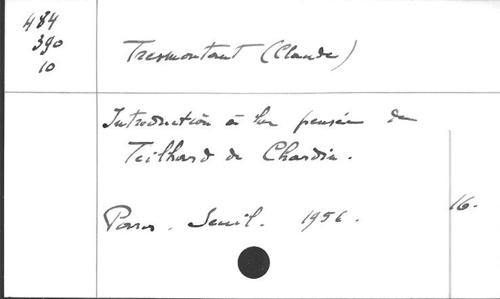 484
390
10
Tresmontant (Claude)
Introduction à la pensée de
Teilhard de Chardin.
Paris. Seuil. 1956.
16.